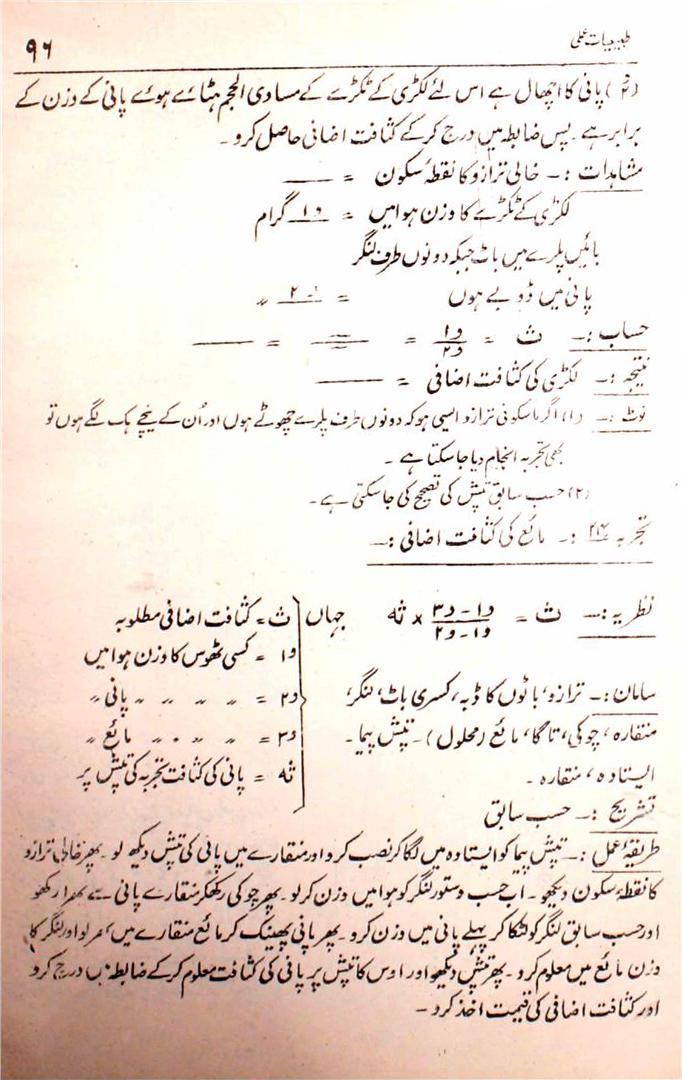 طبیعیات عملی
۹۶
(۲) پانی کا اچھال ہے اس لئے لکڑی کے ٹکڑے کے مساوی الحجم ہٹائے ہوئے پانی کے وزن کے
برابر ہے۔ پس ضابطہ میں درج کرکے کثافت اضافی حاصل کرو۔
مشاہدات :۔ خالی ترازو کا نقطۂ سکون =
لکڑی کے ٹکڑے کا وزن ہوا میں = و۱ گرام
بائیں پلرے میں باٹ جبکہ دونوں طرف لنگر
پانی میں ڈوبے ہوں = ۲ 〃
حساب :۔ ث = و۱/و۲ = =
نتیجہ :۔ لکڑی کی کثافت اضافی =
نوٹ :۔ (۱) اگر ماسکونی ترازو ایسی ہو کہ دونوں طرف پلرے چھوٹے ہوں اور اُن کے نیچے ہک لگے ہوں تو
بھی تجربہ انجام دیا جا سکتا ہے۔
(۲) حسب سابق تپش کی تصحیح کی جاسکتی ہے۔
تجربہ ۲۴ :۔ مائع کی کثافت اضافی :۔
نظریہ :۔ ث = و۱ - و۳/و۱ - و۲ × ثہ جہاں
ث = کثافت اضافی مطلوبہ
و۱ = کسی ٹھوس کا وزن ہوا میں
و۲ = 〃 〃 〃 〃 پانی 〃
و۳ = 〃 〃 〃 〃 مائع 〃
ثہ = پانی کی کثافت تجربہ کی تپش پر
سامان :۔ ترازو، باٹوں کا ڈبہ، کسری باٹ، لنگر،
منقارہ، چوکی، تاگا، مائع (محلول)۔ تپش پیما۔
ایستادہ، منقارہ۔
تشریح :۔ حسب سابق
طریقۂ عمل :۔ تپش پیما کو ایستادہ میں لگا کر نصب کرو اور منقارے میں پانی کی تپش دیکھ لو۔ پھر خالی ترازو
کا نقطۂ سکون دیکھو۔ اب حسب دستور لنگر کو ہوا میں وزن کرلو۔ پھر چوکی رکھکر منقارے پانی سے بھرا رکھو
اور حسب سابق لنگر کو لٹکا کر پہلے پانی میں وزن کرو۔ پھر پانی پھینک کر مائع منقارے میں بھر لو اور لنگر کا
وزن مائع میں معلوم کرو۔ پھر تپش دیکھو اور اوس کا تپش پر پانی کی کثافت معلوم کرکے ضابطہ میں درج کرو
اور کثافت اضافی کی قیمت اخذ کرو۔